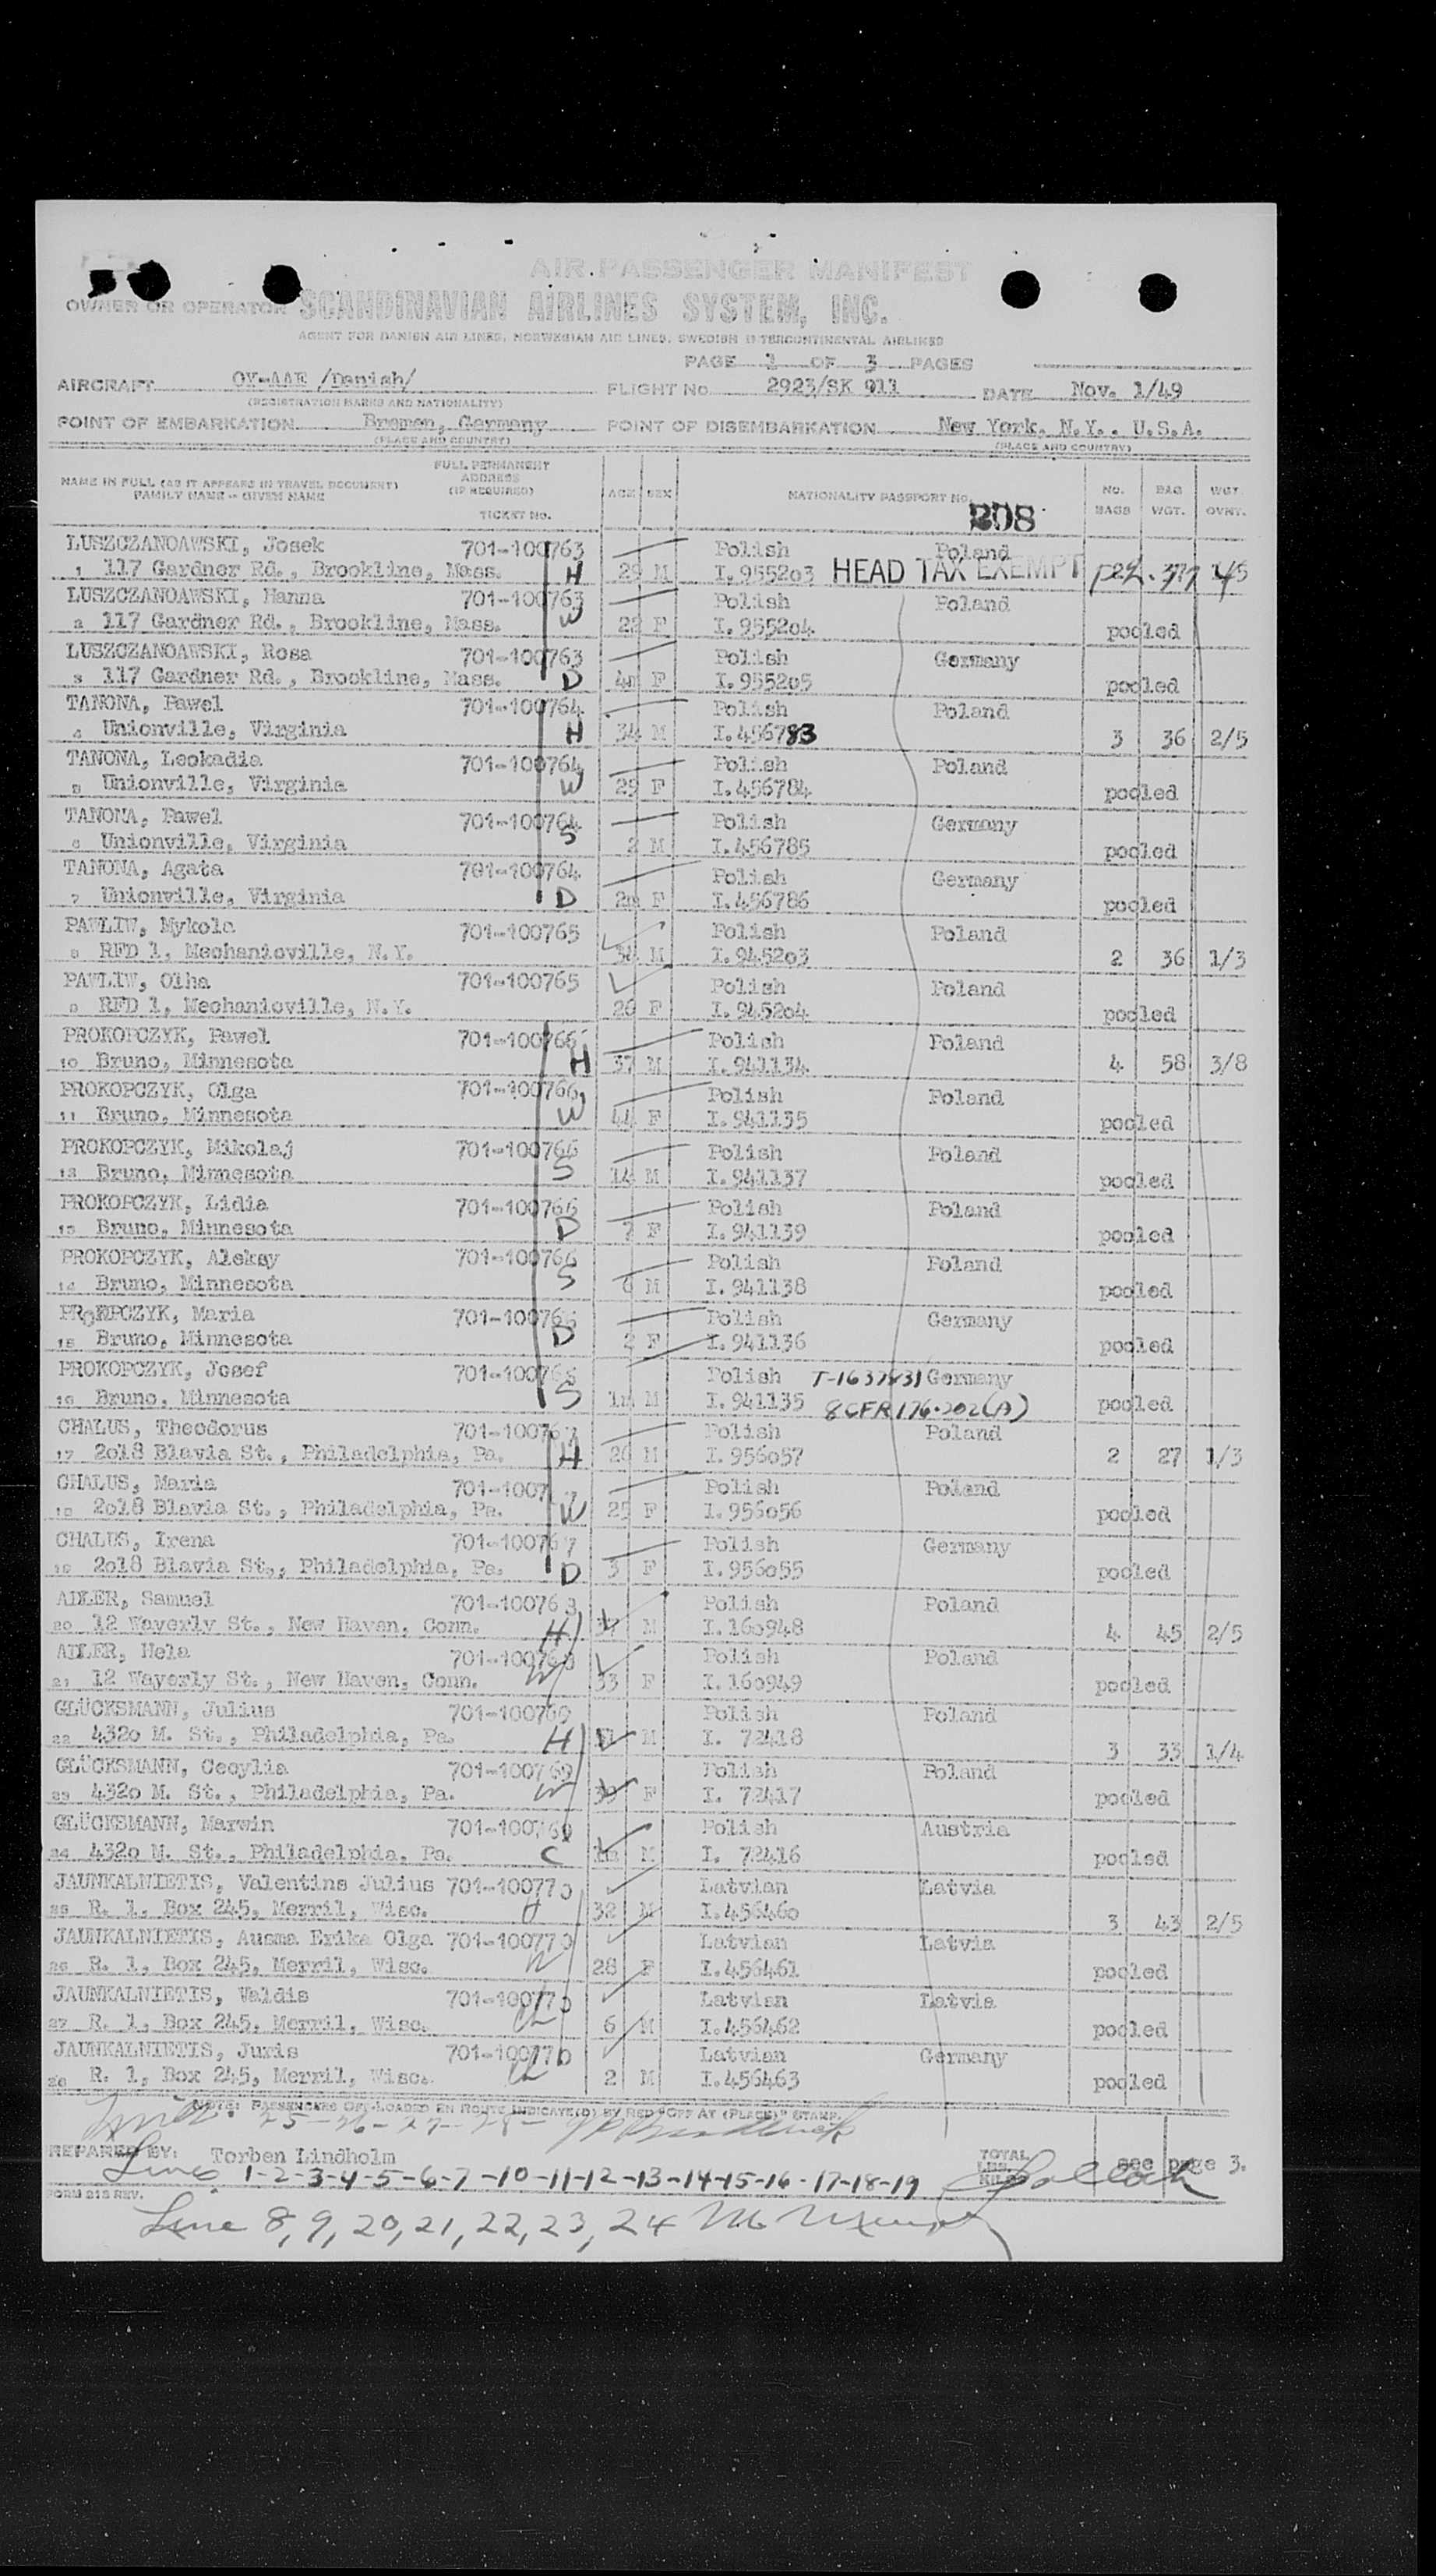 AIR PASSENGER MANIFEST
OWNER OR OPERATOR SCANDINAVIAN AIRLINES SYSTEM, INC.
AGENT FOR DANISH AIR LINES, NORWEGIAN AIR LINES, SWEDISH INTERCONTINENTAL AIRLINES
PAGE 1 OF 3 PAGES
AIRCRAFT OY-AAE /Danish/ FLIGHT No. 2923/SK 911 DATE Nov. 1/49
(REGISTRATION MARKS AND NATIONALITY)
POINT OF EMBARKATION Bremen, Germany POINT OF DISEMBARKATION New York, N.Y., U.S.A.
(PLACE AND COUNTRY) (PLACE AND COUNTRY)
NAME IN FULL (AS IT APPEARS IN TRAVEL DOCUMENT) FAMILY NAME - GIVEN NAME FULL PERMANENT ADDRESS (IF REQUIRED) TICKET No. AGE SEX NATIONALITY PASSPORT No. NO. BAGS BAG WGT. WGT. OVWT.
208
LUSZCZANOAWSKI, Josek 701-100763 Polish Poland
1 117 Gardner Rd., Brookline, Mass. H 29 M I.955203 HEAD TAX EXEMPT
LUSZCZANOAWSKI, Hanna 701-100763 Polish Poland
2 117 Gardner Rd., Brookline, Mass. W 22 F I.955204 pooled
LUSZCZANOAWSKI, Rosa 701-100763 Polish Germany
3 117 Gardner Rd., Brookline, Mass. D 4m F I.955205 pooled
TANONA, Pawel 701-100764 Polish Poland
4 Unionville, Virginia H 34 M I.456783 3 36 2/5
TANONA, Leokadia 701-100764 Polish Poland
5 Unionville, Virginia W 25 F I.456784 pooled
TANONA, Pawel 701-100764 Polish Germany
6 Unionville, Virginia S 2 M I.456785 pooled
TANONA, Agata 701-100764 Polish Germany
7 Unionville, Virginia D 2m F I.456786 pooled
PAWLIW, Mykola 701-100765 Polish Poland
8 RFD 1, Mechanicville, N.Y. M I.945203 2 36 1/3
PAWLIW, Olha 701-100765 Polish Poland
9 RFD 1, Mechanicville, N.Y. 26 F I.945204 pooled
PROKOPCZYK, Pawel 701-100766 Polish Poland
10 Bruno, Minnesota H 37 M I.941134 4 58 3/8
PROKOPCZYK, Olga 701-100766 Polish Poland
11 Bruno, Minnesota W 44 F I.941135 pooled
PROKOPCZYK, Mikolaj 701-100766 Polish Poland
12 Bruno, Minnesota S 14 M I.941137 pooled
PROKOPCZYK, Lidia 701-100766 Polish Poland
13 Bruno, Minnesota D 7 F I.941139 pooled
PROKOPCZYK, Aleksy 701-100766 Polish Poland
14 Bruno, Minnesota S 6 M I.941138 pooled
PROKOPCZYK, Maria 701-100766 Polish Germany
15 Bruno, Minnesota D 2 F I.941136 pooled
PROKOPCZYK, Josef 701-100766 Polish T-1637831 Germany
16 Bruno, Minnesota S M I.941135 8CFR176.202(A) pooled
CHALUS, Theodorus 701-100767 Polish Poland
17 2018 Blavia St., Philadelphia, Pa. H 26 M I.956057 2 27 1/3
CHALUS, Maria 701-1007 7 Polish Poland
18 2018 Blavia St., Philadelphia, Pa. W 25 F I.956056 pooled
CHALUS, Irena 701-100767 Polish Germany
19 2018 Blavia St., Philadelphia, Pa. D 3 F I.956055 pooled
ADLER, Samuel 701-100768 Polish Poland
20 12 Waverly St., New Haven, Conn. H M I.160948 4 45 2/5
ADLER, Hela 701-100768 Polish Poland
21 12 Waverly St., New Haven, Conn. W 33 F I.160949 pooled
GLÜCKSMANN, Julius 701-100769 Polish Poland
22 4320 M. St., Philadelphia, Pa. H M I. 72418 3 33 1/4
GLÜCKSMANN, Cecylia 701-100769 Polish Poland
23 4320 M. St., Philadelphia, Pa. W 39 F I. 72417 pooled
GLÜCKSMANN, Marwin 701-100769 Polish Austria
24 4320 M. St., Philadelphia, Pa. C M I. 72416 pooled
JAUNKALNIETIS, Valentins Julius 701-100770 Latvian Latvia
25 R. 1, Box 245, Merril, Wisc. H 32 M I.456460 3 43 2/5
JAUNKALNIETIS, Ausma Erika Olga 701-100770 Latvian Latvia
26 R. 1, Box 245, Merril, Wisc. W 28 F I.456461 pooled
JAUNKALNIETIS, Valdis 701-100770 Latvian Latvia
27 R. 1, Box 245, Merril, Wisc. Ch 6 M I.456462 pooled
JAUNKALNIETIS, Juris 701-100770 Latvian Germany
28 R. 1, Box 245, Merril, Wisc. Ch 2 M I.456463 pooled
NOTE: PASSENGERS OFF-LOADED EN ROUTE INDICATE(D) BY RED "OFF AT (PLACE)" STAMP.
25-26-27-28-
REPARED BY: Torben Lindholm TOTAL LBS. KILOS see page 3.
Line 1-2-3-4-5-6-7-10-11-12-13-14-15-16-17-18-19 Pollack
FORM 215 REV.
Line 8, 9, 20, 21, 22, 23, 24